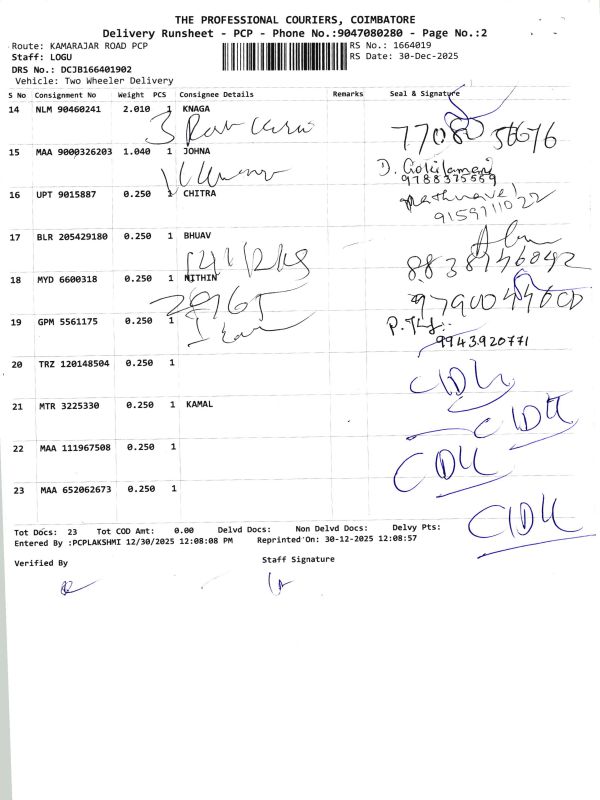 THE PROFESSIONAL COURIERS, COIMBATORE
Delivery Runsheet - PCP - Phone No.:9047080280 - Page No.:2
Route: KAMARAJAR ROAD PCP
RS No.: 1664019
Staff: LOGU
RS Date: 30-Dec-2025
DRS No.: DCJB166401902
Vehicle: Two Wheeler Delivery
S No Consignment No Weight PCS Consignee Details Remarks Seal & Signature
14 NLM 90460241 2.010 1 KNAGA
15 MAA 9000326203 1.040 1 JOHNA
D. Gokilamani
9788375559
16 UPT 9015887 0.250 1 CHITRA
9159711022
17 BLR 205429180 0.250 1 BHUAV
8838946842
18 MYD 6600318 0.250 1 NITHIN
28965
19 GPM 5561175 0.250 1
9943920771
20 TRZ 120148504 0.250 1
21 MTR 3225330 0.250 1 KAMAL
22 MAA 111967508 0.250 1
23 MAA 652062673 0.250 1
Tot Docs: 23 Tot COD Amt: 0.00 Delvd Docs: Non Delvd Docs: Delvy Pts:
Entered By :PCPLAKSHMI 12/30/2025 12:08:08 PM Reprinted On: 30-12-2025 12:08:57
Verified By Staff Signature